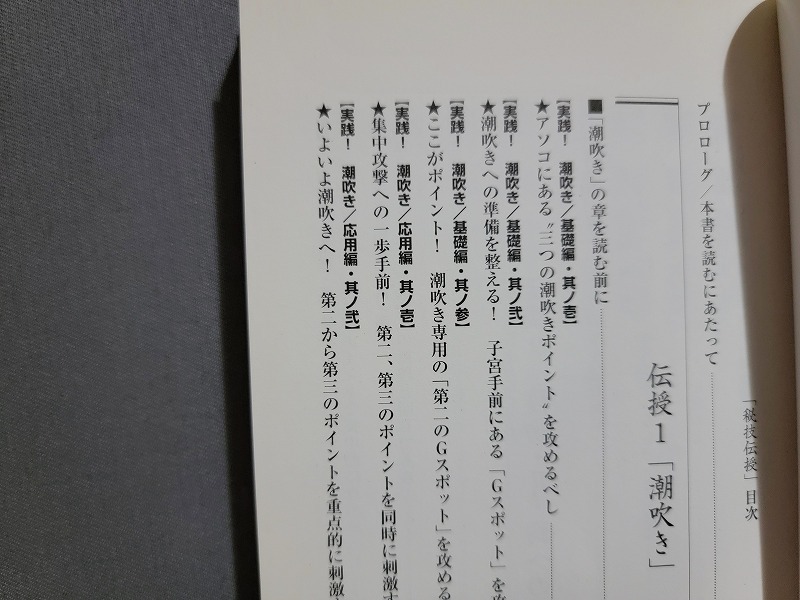 「秘技伝授」目次
プロローグ/本書を読むにあたって
伝授1「潮吹き」
■「潮吹き」の章を読む前に
【実践! 潮吹き/基礎編・其ノ壱】
★アソコにある〝三つの潮吹きポイント〟を攻めるべし
【実践! 潮吹き/基礎編・其ノ弐】
★潮吹きへの準備を整える! 子宮手前にある「Gスポット」を
【実践! 潮吹き/基礎編・其ノ参】
★ここがポイント! 潮吹き専用の「第二のGスポット」を攻める
【実践! 潮吹き/応用編・其ノ壱】
★集中攻撃への一歩手前! 第二、第三のポイントを同時に刺激す
【実践! 潮吹き/応用編・其ノ弐】
★いよいよ潮吹きへ! 第二から第三のポイントを重点的に刺激